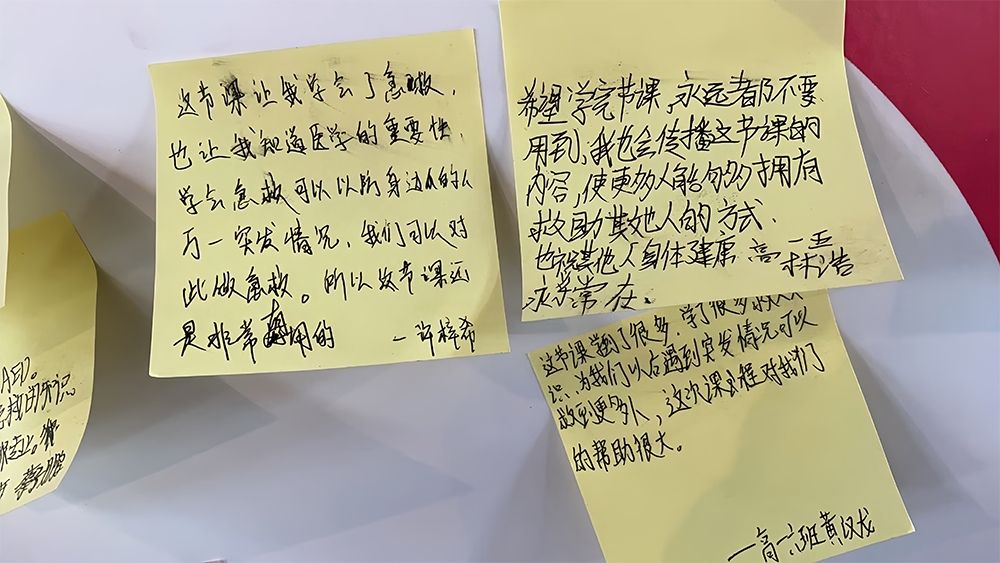 这节课让我学会了急救,
也让我知道医学的重要性,
学会急救可以以防身边的人
万一突发情况,我们可以对
此做急救。所以这节课还
是非常有用的
一许梓希
希望学完节课,永远都不要
用到,我也会传播这节课的
内容,使更多人能够多拥有
救助其她人的方式.
也祝其他人身体健康
高一五
林浩
永常在.
这节课学到了很多,学了很多
识,为我们以后遇到突发情况可以
救到更多人,这次课程对我们
的帮助很大。
一高一六班黄汉龙
AED。